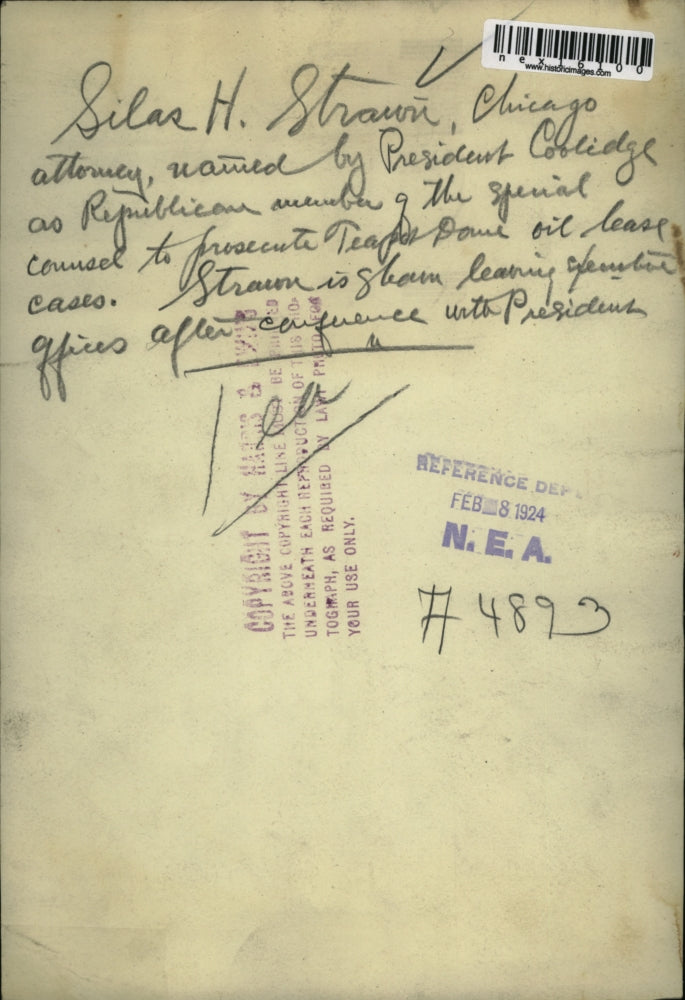 nex16100
www.historicimages.com
Silas H. Strawn, Chicago
attorney, named by President Coolidge
as Republican member of the special
counsel to prosecute Teapot Dome oil lease
cases. Strawn is shown leaving executive
offices after conference with President
COPYRIGHT BY HARRIS &
THE ABOVE COPYRIGHT LINE MUST BE PRINTED
UNDERNEATH EACH REPRODUCTION OF THIS PHO-
TOGRAPH, AS REQUIRED BY LAW. PHOTO FOR
YOUR USE ONLY.
REFERENCE DEPT.
FEB 8 1924
N. E. A.
# 4893